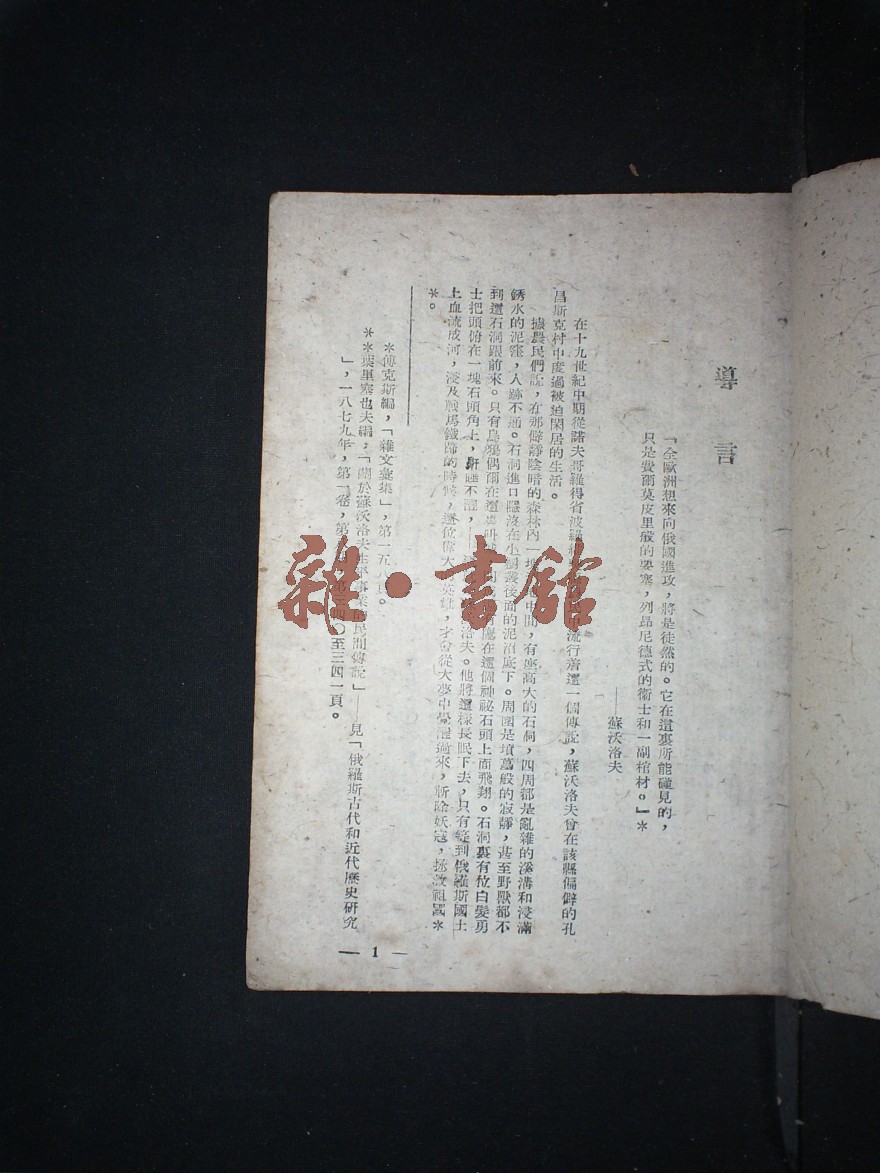 導言
「全歐洲想來向俄國進攻,將是徒然的。它在這裏所能碰見的,
只是費爾莫皮里般的要塞,列昂尼德式的衞士和一副棺材。」*
——蘇沃洛夫
在十九世紀中期從諾夫哥羅得省波羅 流行着這一個傳說,蘇沃洛夫曾在該縣偏僻的孔
昌斯克村中度過被迫閑居的生活。
據農民們說,在那僻靜陰暗的森林內一塊 中間,有座高大的石洞,四周都是亂雜的溪溝和浸滿
銹水的泥窪,人跡不通。石洞進口隱沒在小樹叢後面的泥沼底下。周圍是墳墓般的寂靜,甚至野獸都不
到這石洞跟前來。只有烏鴉偶爾在這裏叫 鷹在這個神祕石頭上面飛翔。石洞裏有位白髮勇
士把頭俯在一塊石頭角上,鼾睡不醒,— 洛夫。他將這樣長眠下去,只有等到俄羅斯國土
上血流成河,浸及戰馬鐵蹄的時候,這位偉大 英雄,才會從大夢中覺醒過來,斬除妖寇,拯救祖國*
*。
*傅克斯編,「雜文彙集」,第一五八頁。
**葉里塞也夫編,「關於蘇沃洛夫生平事業的民間傳說」——見「俄羅斯古代和近代歷史研究
」,一八七九年,第一卷,第 第三四〇至三四一頁。
— 1 —
雜·書館